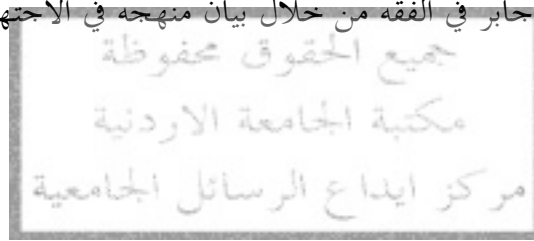 جابر في الفقه من خلال بيان منهجه في الاجته
جميع الحقوق محفوظة
مكتبة الجامعة الاردنية
مركز ايداع الرسائل الجامعية